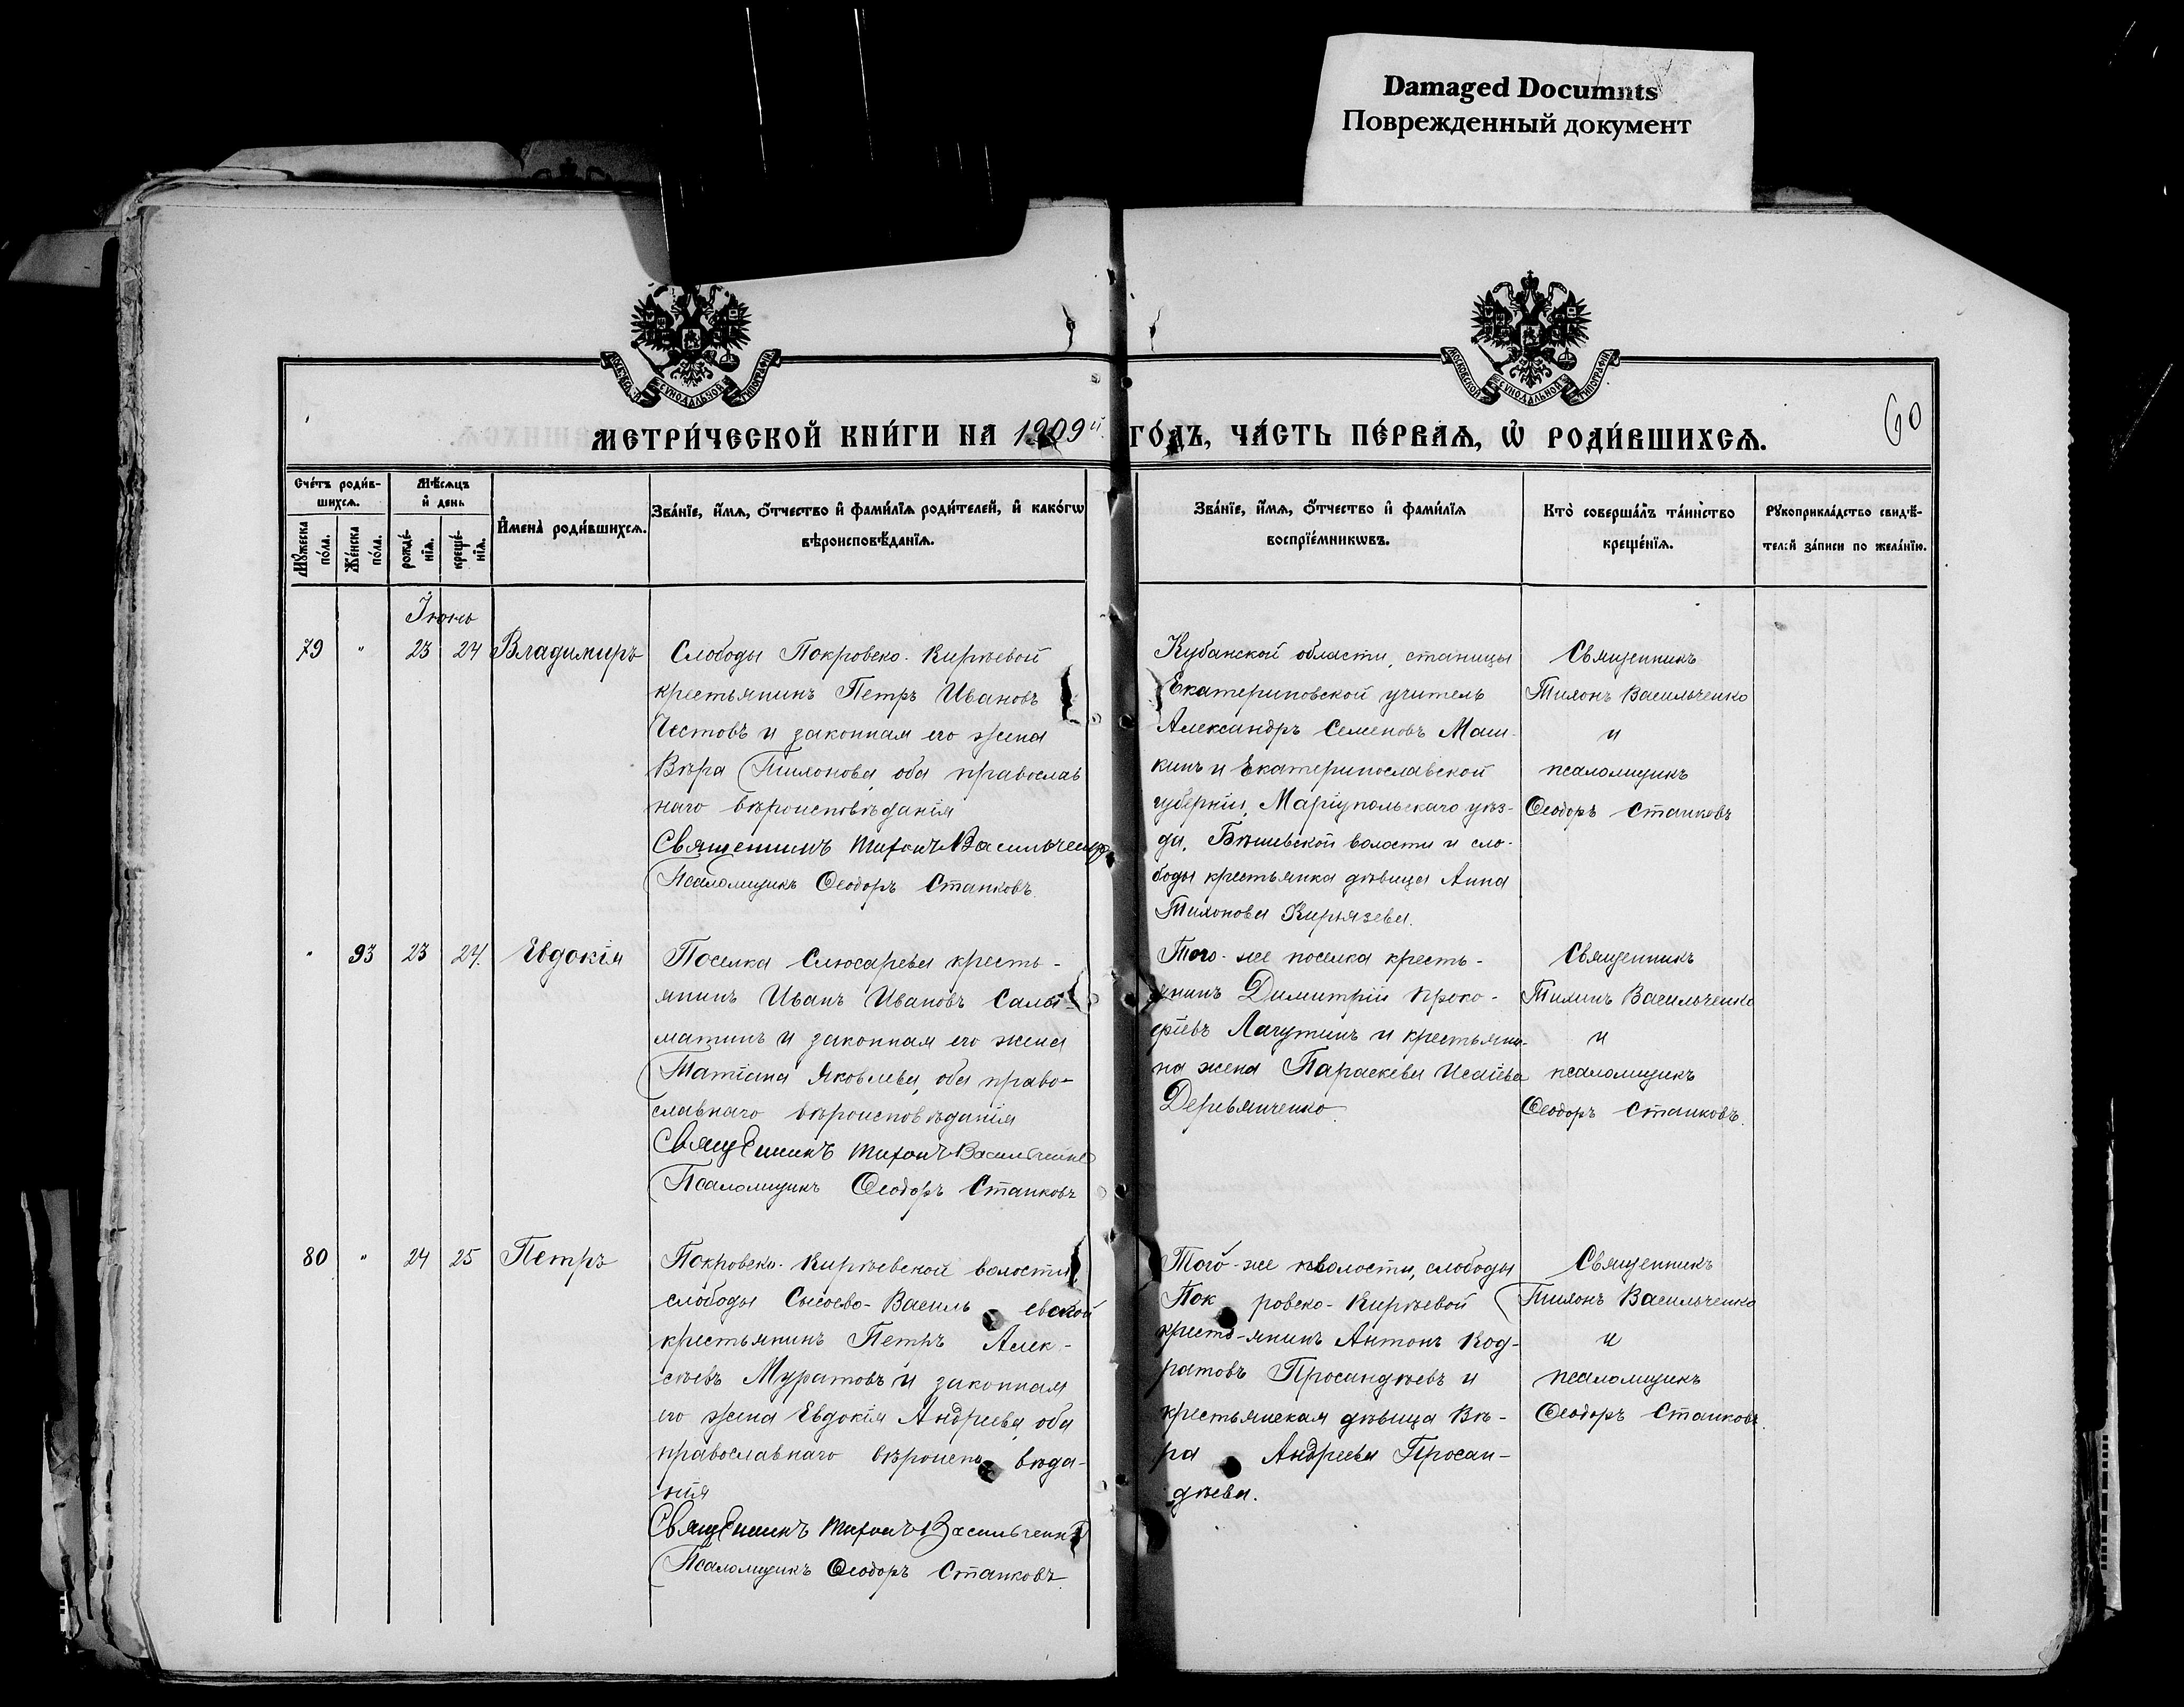 Damaged Documnts
Поврежденный документ
МОСКОВСКОЙ СѴНОДАЛЬНОЙ ТИПОГРАФІИ
60
МЕТРИ́ЧЕСКОЙ КНИ́ГИ НА 1909й ГО́ДЪ, ЧА́СТЬ ПЕ́РВАЯ, Ѡ РОДИ́ВШИХСЯ.
Сче́тъ роди́в-
шихся.
Мѣ́сяцъ
и день
Мꙋ́жеска по́ла.
Же́нска по́ла.
рожде́-
нїѧ.
креще́-
нїѧ.
И҆мена̀ роди́вшихсѧ.
Зва́нїе, и҆́мѧ, ѻ҆́тчество и҆ фами́лїѧ роди́телей, и҆ како́гѡ
вѣроисповѣ́данїѧ.
Зва́нїе, и҆́мѧ, ѻ҆́тчество и҆ фами́лїѧ
воспрїе́мникѡвъ.
Кто̀ соверша́лъ та́инство
креще́нїѧ.
Рꙋкоприкла́дство свидѣ́-
телей за́писи по жела́нїю.
Іюнь
79 " 23 24 Владимиръ
Слободы Покровско-Кирѣевой
крестьянинъ Петръ Ивановъ
Чистовъ и законная его жена
Вѣра Тихонова, оба православ
наго вѣроисповѣданія
Священникъ Тихонъ Васильченко
Псаломщикъ Ѳеодоръ Станковъ
Кубанской области, станицы
Екатериновской учитель
Александръ Семеновъ Маш-
кинъ и Екатеринославской
губерніи, Маріупольскаго уѣз-
да, Бѣшевской волости и сло-
боды крестьянка дѣвица Анна
Тихонова Кирьязева.
Священникъ
Тихонъ Васильченко
и
псаломщикъ
Ѳеодоръ Станковъ
" 93 23 24. Евдокія
Поселка Слюсарева кресть-
янинъ Иванъ Ивановъ Сала-
матинъ и законная его жена
Татіана Яковлева, оба право-
славнаго вѣроисповѣданія
Священникъ Тихонъ Васильченко
Псаломщикъ Ѳеодоръ Станковъ
Того-же поселка кресть-
янинъ Димитрій Проко-
фіевъ Лагутинъ и крестьяни-
на жена Параскева Исаіева
Деревянченко.
Священникъ
Тихонъ Васильченко
и
псаломщикъ
Ѳеодоръ Станковъ.
80 " 24 25 Петръ
Покровско-Кирѣевской волости,
слободы Сысоево-Василь евской
крестьянинъ Петръ Алек-
сѣевъ Муратовъ и законная
его жена Евдокія Андреева, оба
православнаго вѣроиспо вѣда-
нія
Священникъ Тихонъ Васильченко
Псаломщикъ Ѳеодоръ Станковъ
Того-же волости, слободы
Пок ровско-Кирѣевой
кресть-янинъ Антонъ Код-
ратовъ Просандѣевъ и
крестьянская дѣвица Вѣ-
ра Андреева Просан-
дѣева.
Священникъ
Тихонъ Васильченко
и
псаломщикъ
Ѳеодоръ Станковъ.